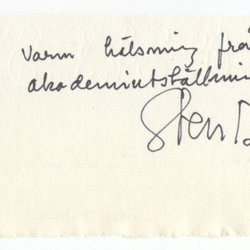 varm hälsning från
akademiutställnin
Sten D